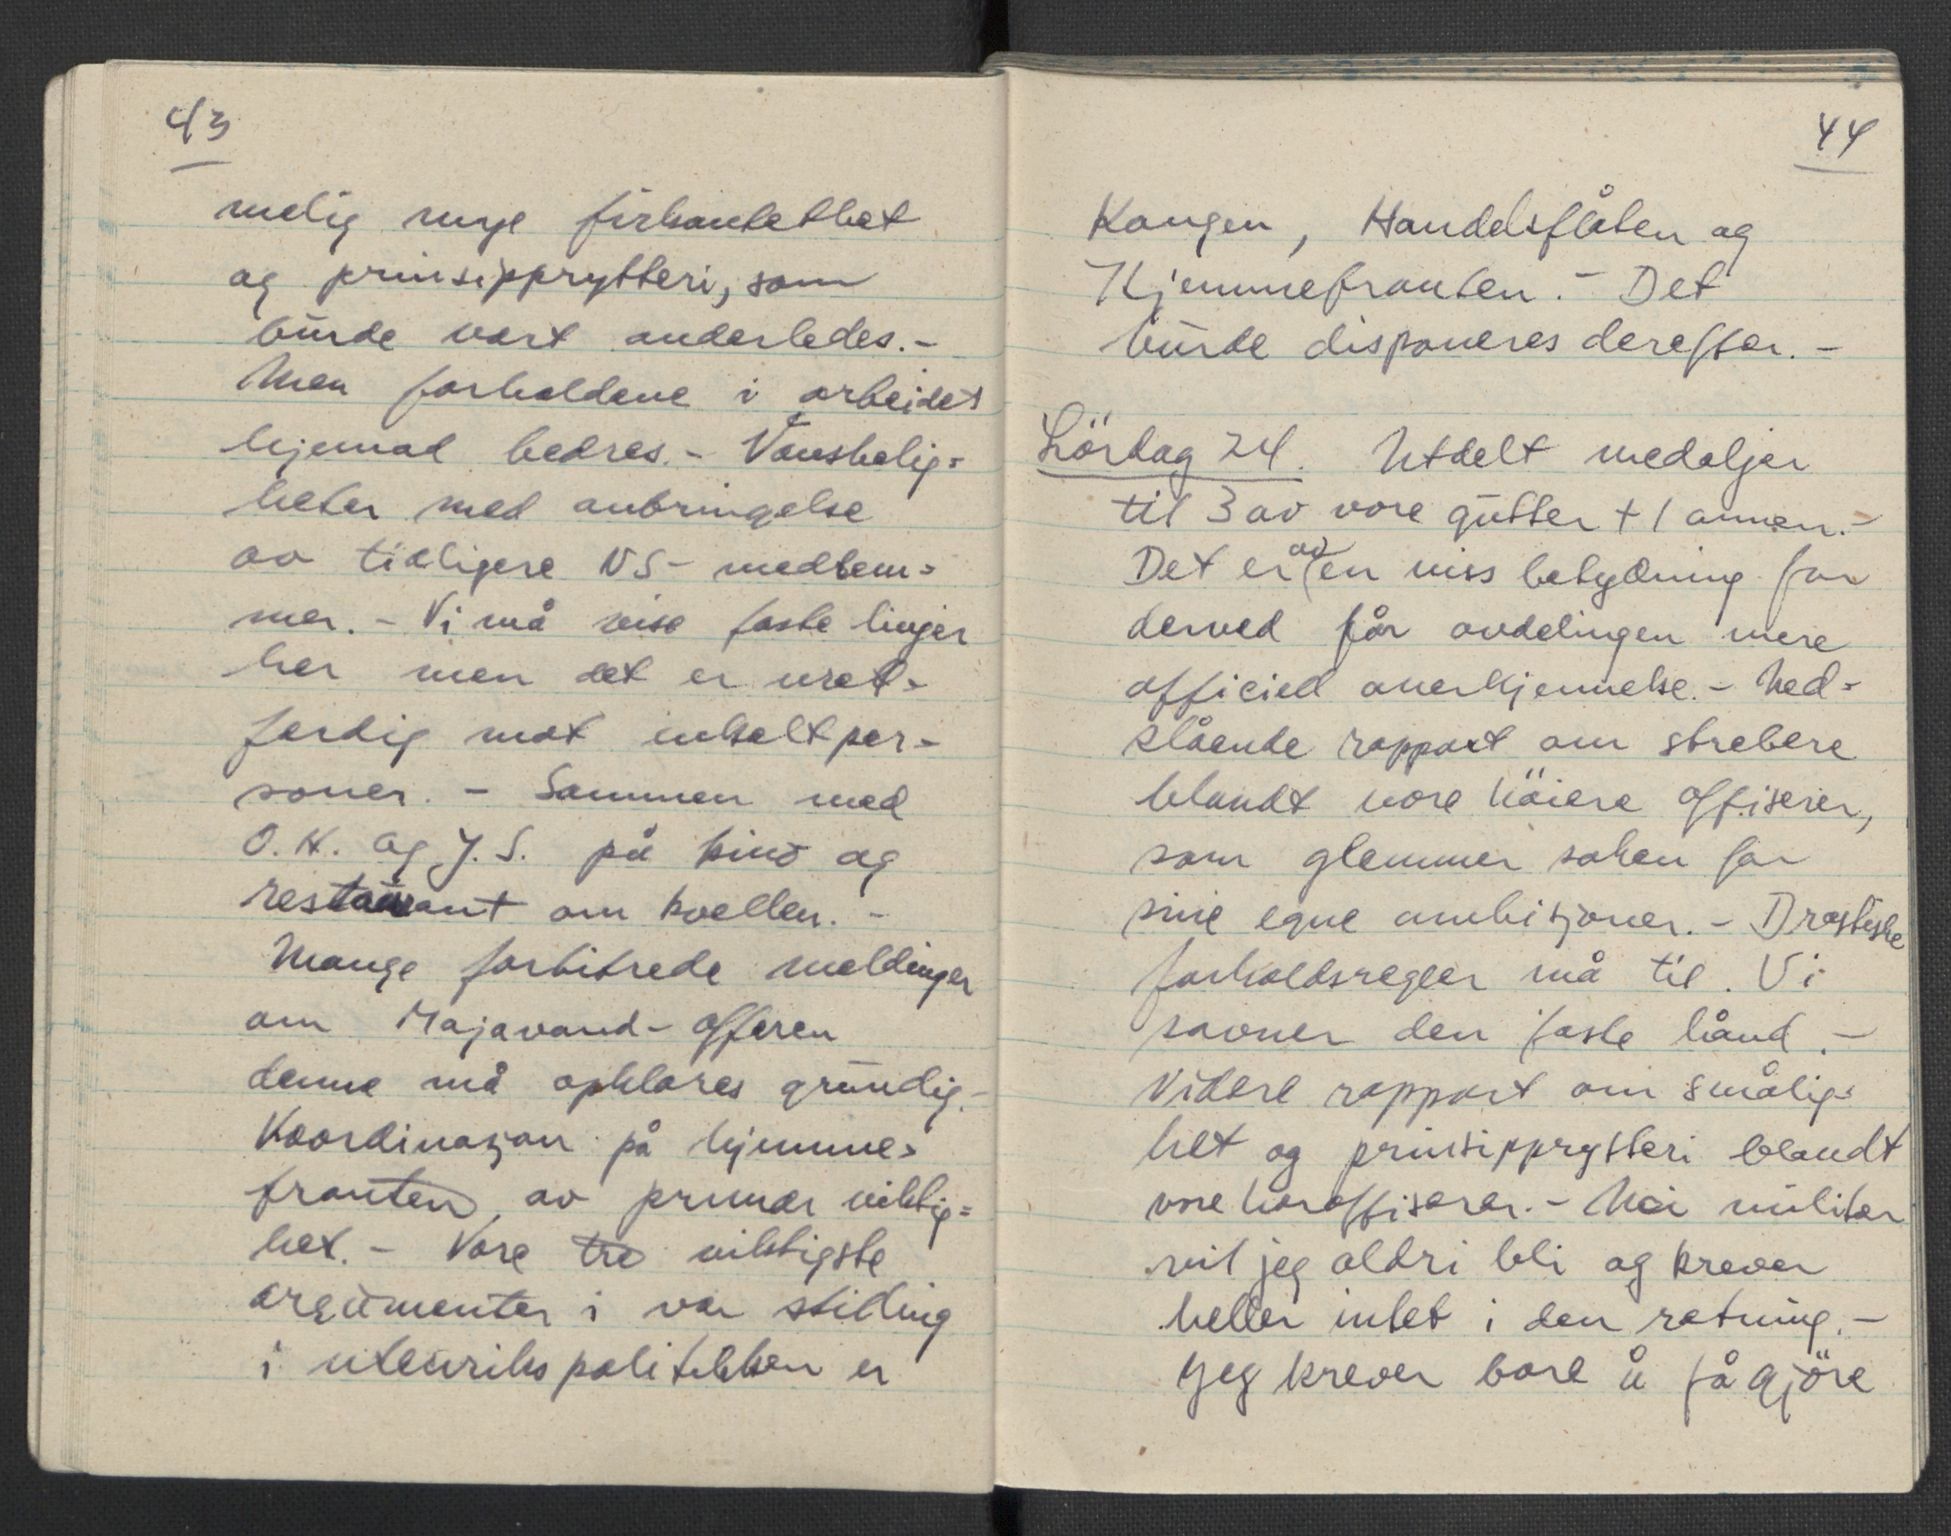 43
melig mye firkantethet
og prinsipprytteri, som
burde vært anderledes. -
Men forholdene i arbeidet
hjemad bedres. - Vanskelig=
heter med anbringelse
av tidligere NS - medlem=
mer. - Vi må vise faste linjer
her men det er uret=
ferdig mot enkeltper=
soner. - Sammen med
O.H. og J.S. på kino og
restaurant om kvellen. -
Mange forbitrede meldinger
om Majavand - offeren
denne må opklares grundig. -
Koordinasjon på hjemme=
fronten av primær viktig=
het. - Vore tre viktigste
argumenter i vor stilling
i utenrikspolitikken er
44
Kongen, Handelsflåten og
Hjemmefronten. - Det
burde disponeres derefter. -
Lördag 24. Utdelt medaljer
til 3 av vore gutter + 1 annen. -
Det er av en viss betydning for
derved får avdelingen mere
officiell anerkjennelse. - Ned=
slående rapport om strebere
blandt vore höiere offiserer,
som glemmer saken for
sine egne ambisjoner. - Drastiske
forholdsregler må til. Vi
savner den faste hånd. -
Videre rapport om smålig=
het og prinsipprytteri blandt
vore häroffiserer. - Nei militær
vil jeg aldri bli og krever
heller intet i den retning. -
Jeg krever bare å få gjöre